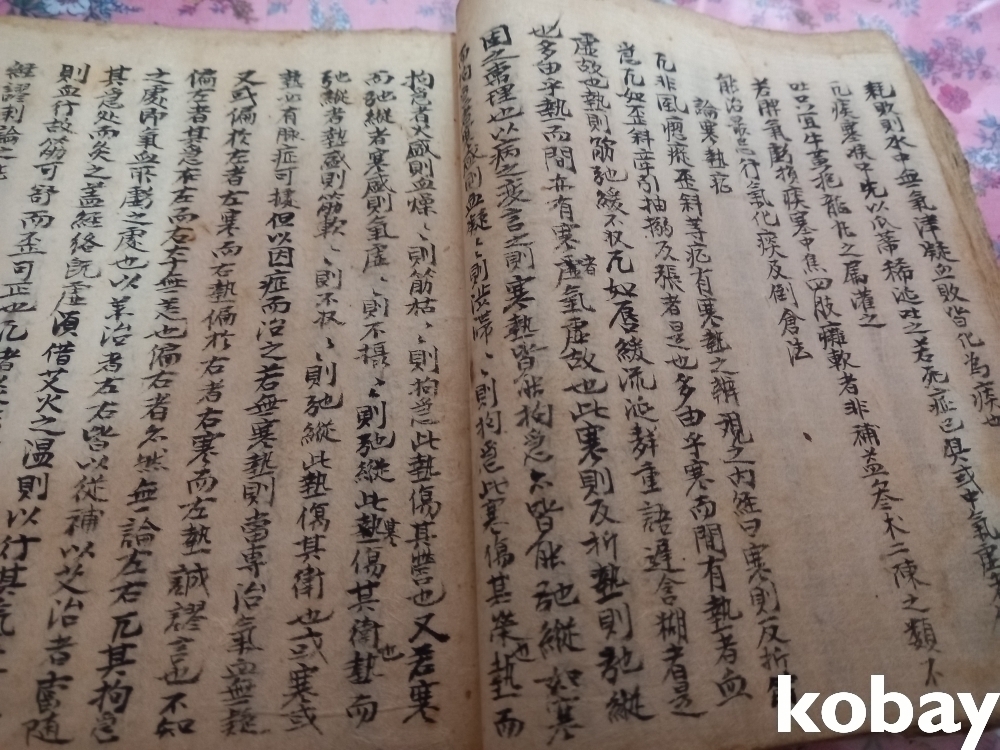 耗敗則水中無氣津凝血敗皆化為痰也
凡痰壅候中先以瓜蒂稀涎吐之若死症已具或中氣虛
吐只宜牛黃抱龍丸之屬灌之
若脾氣虧損痰塞中焦四肢癱軟者非補益參朮二陳之類不
能治最忌行氣化痰及倒倉法
論寒熱症
凡非風瘈瘲歪斜等症有寒熱之辨現之內經曰寒則反折
急凡如歪斜牽引抽搦反張者是也多由乎寒而間有熱者血
虛故也熱則筋弛緩不收凡如唇緩流涎躰重語遲含糊者是
也多由乎熱而間亦有寒者虛氣虛故也此寒則反折熱則弛縱
固之常理也以病之変言之則寒熱皆能拘急亦皆能弛縱如寒
而拘急者寒盛則血凝〻則澁滯〻則拘急此寒傷其榮也熱而
拘急者火盛則血燥〻則筋枯〻則拘急此熱傷其營也又若寒
而弛縱者寒盛則氣虛〻則不攝〻則弛縱此熱寒傷其衛也熱而
弛縱者熱盛則筋軟〻則不収〻則弛縱此熱傷其衛也或寒或
熱必有脉症可據但以因症而治之若無寒熱則當專治氣血無疑
又或偏於左者左寒而右熱偏於右者右寒而左熱誠謬言也不知
偏左者其急在左而右本無恙也偏右者亦然無論左右凡其拘急
之處卽氣血所虧之處也以藥治者左右皆以從補以艾治者當隨
其急处而灸之盖經絡旣虛須借艾火之溫則以行其氣
則血行故筋可舒而歪可正也凡者
經謬刺論